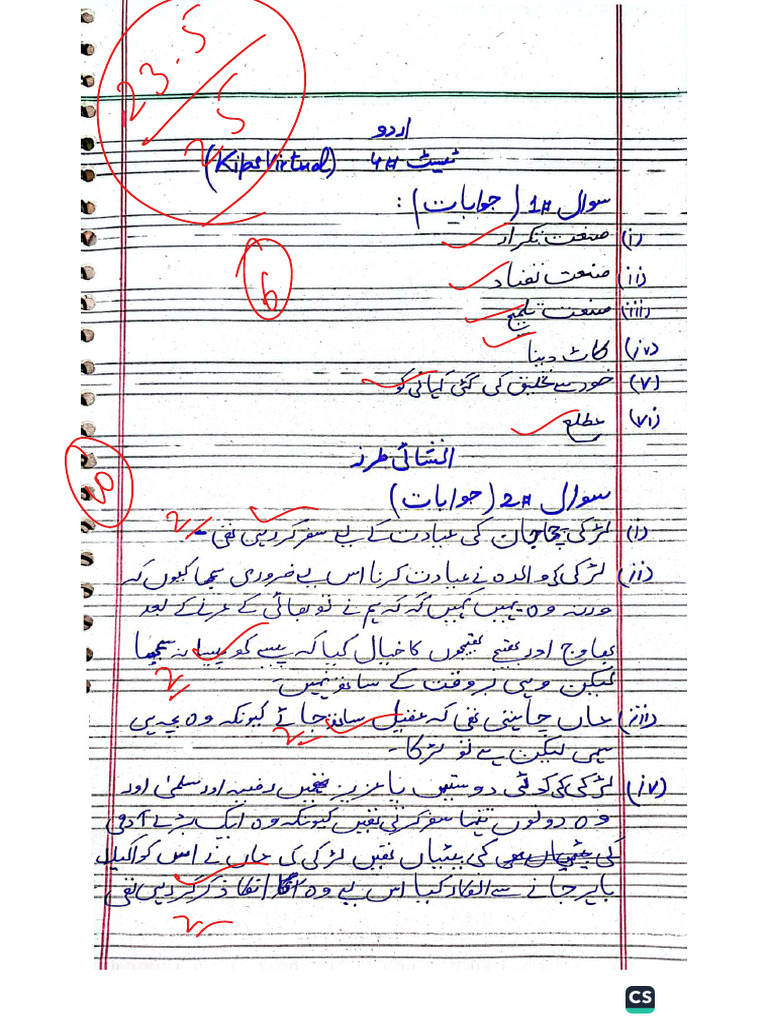 23.5/25
اردو
ٹیسٹ #4 (Kips Virtual)
سوال #1 (جوابات):
(i) صنعت تکرار
(ii) صنعت تضاد
6
(iii) صنعت تلمیح
(iv) کاٹ دینا
(v) خود سے تخلیق کی گئی کہانی کو
(vi) مطلع
انشائی طرز
سوال #2 (جوابات)
(i) لڑکی چچا جان کی عیادت کے لیے سفر کر رہی تھی۔
2
(ii) لڑکی کی والدہ نے عیادت کرنا اس لیے ضروری سمجھا کیوں کہ
ورنہ وہ یہیں کہیں گے کہ ہم نے تو بھائی کے مرنے کے بعد
بھاوج اور بھتیجے بھتیجوں کا خیال کیا کہ پیسے کو پیسا نہ سمجھا
لیکن وہی بروقت کے ساتھ نہیں۔
2
(iii) ماں چاہتی تھی کہ عقیل ساتھ جائے کیونکہ وہ بچہ ہی
2
سہی لیکن ہے تو لڑکا۔
(iv) لڑکی کی کوئی دوستیں یا عزیز تھیں رضیہ اور سلمیٰ اور
وہ دونوں تنہا سفر کرتی تھیں کیونکہ وہ ایک بڑے آدمی
کی بیٹیاں تھیں لڑکی کی ماں نے اس کو اکیلے
باہر جانے سے انکار کیا اس لیے وہ انکا ذکر کر رہی تھی
2
CS